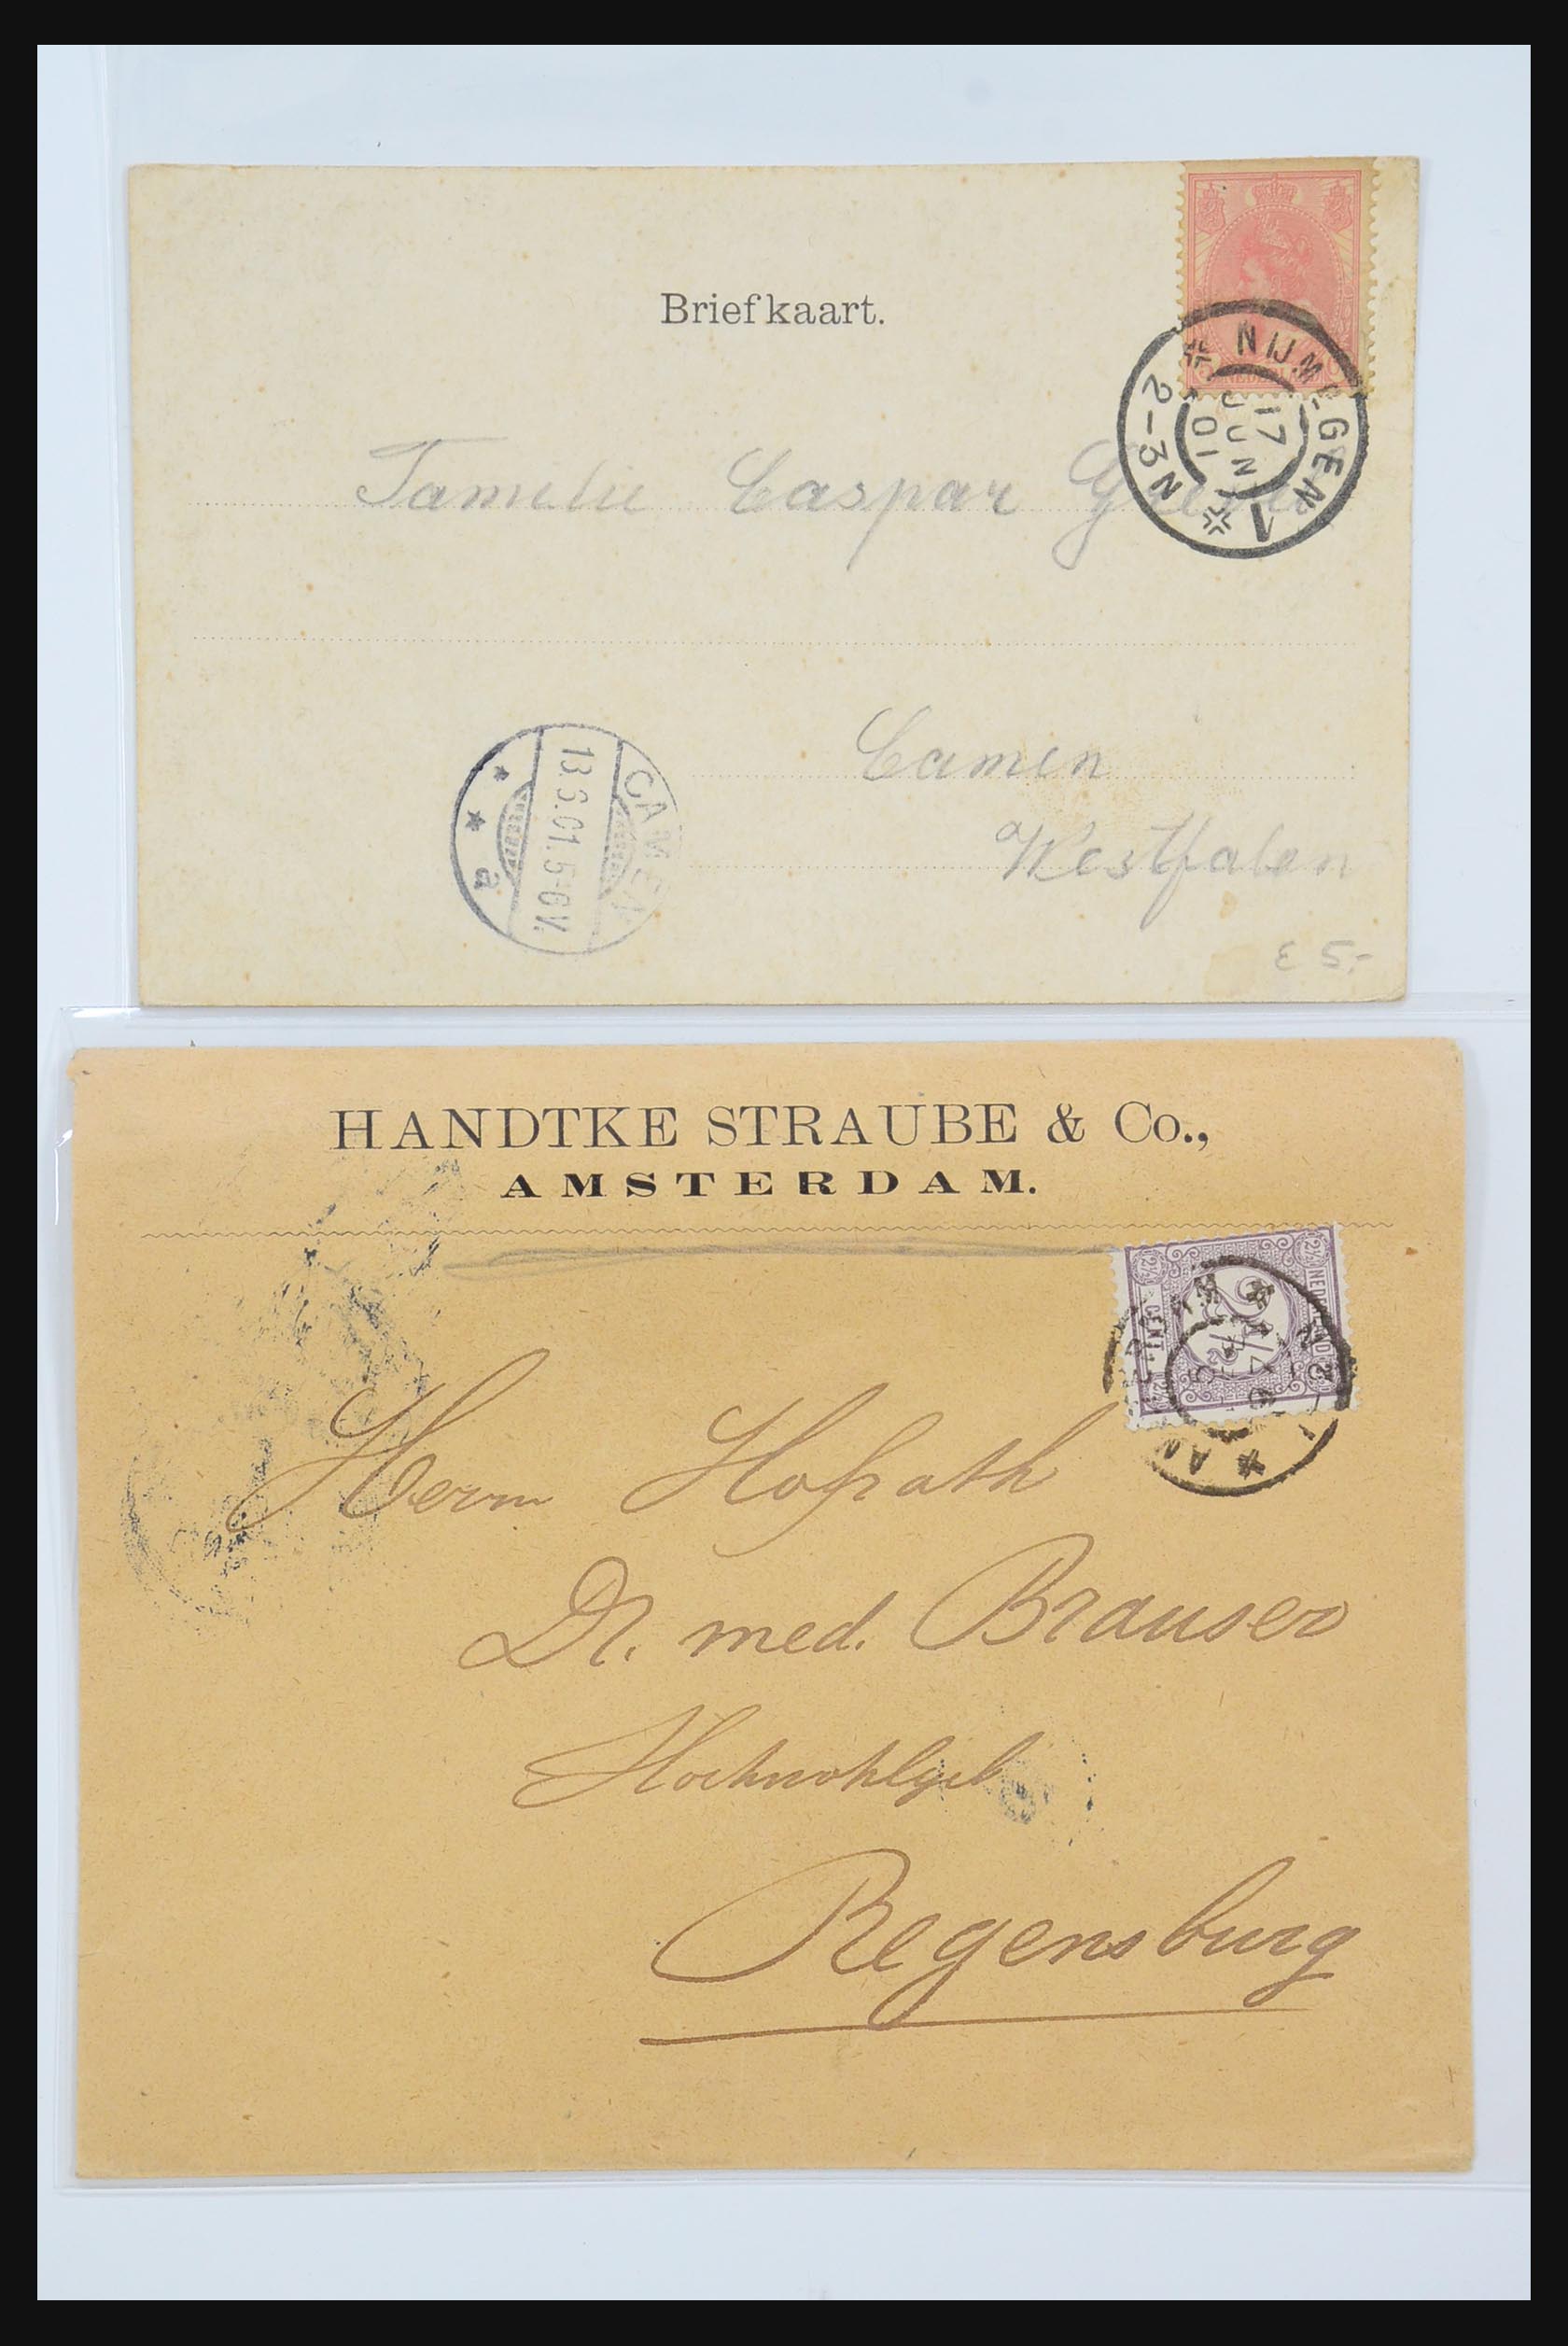 Briefkaart.
NIJMEGEN 1
17 JUN 01
2-3N
Familie Caspar
Camen
Westfalen
CAMEN
13.6.01.5-6V.
* * a
£ 5,-
HANDTKE STRAUBE & Co.,
AMSTERDAM.
2½ CENT NEDERLAND 2½
Herrn Hofrath
Dr. med. Brauser
Hochwohlgeb
Regensburg